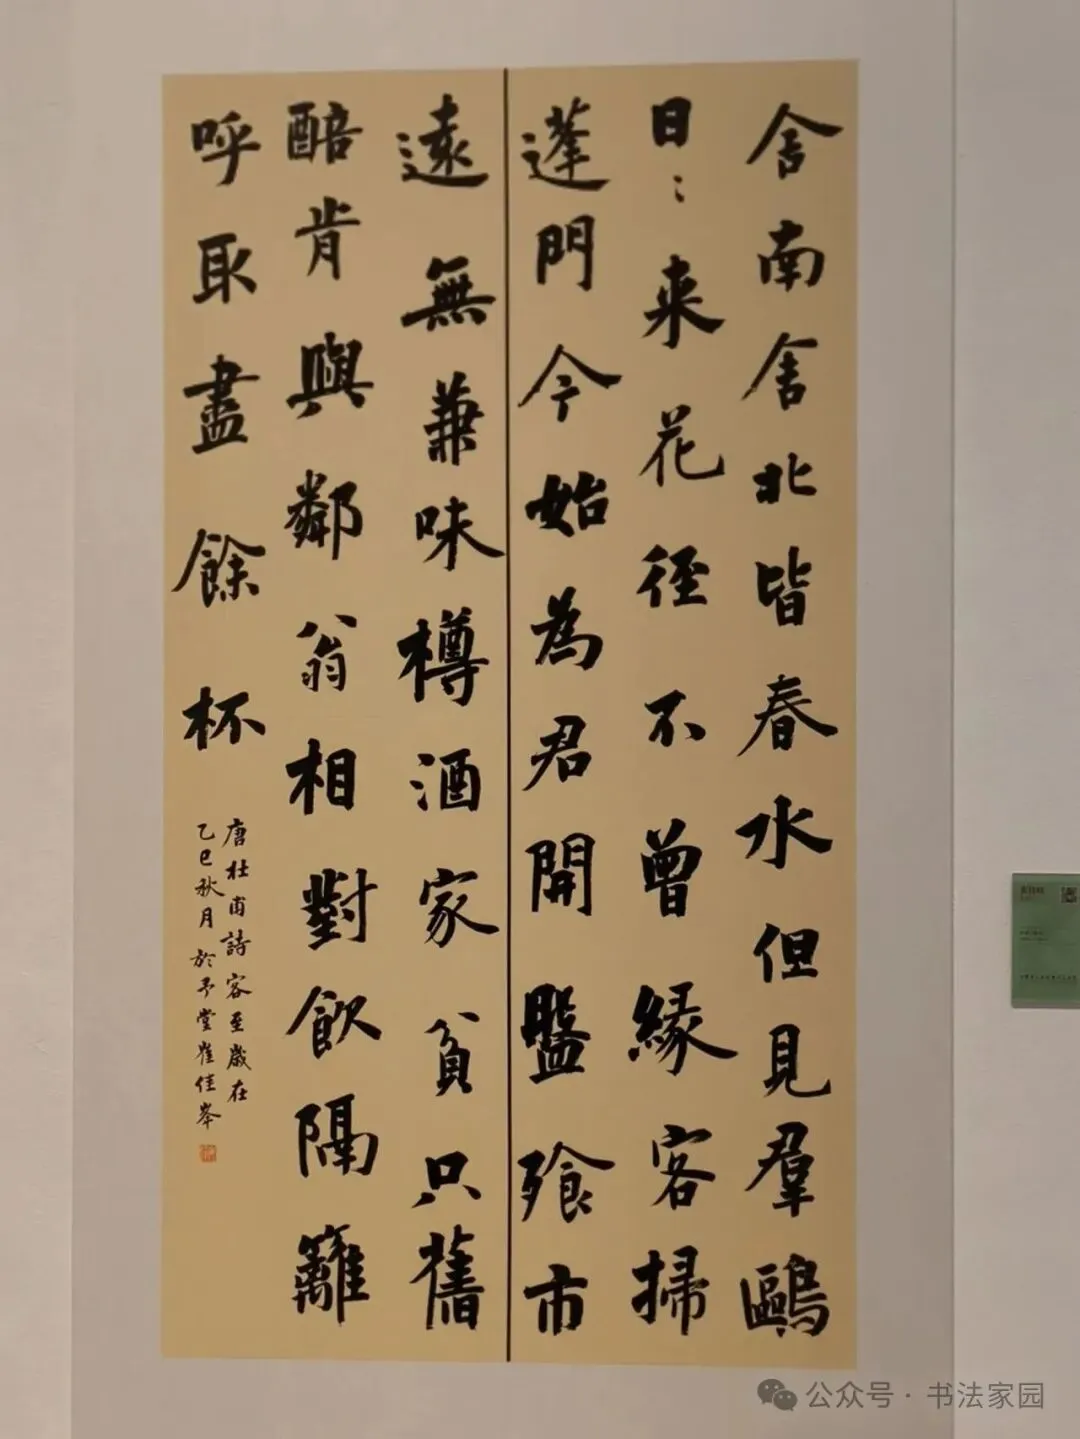 舍南舍北皆春水但見羣鷗
日〻来花徑不曾緣客掃
蓬門今始為君開盤飱市
遠無兼味樽酒家貧只舊
醅肯與鄰翁相對飲隔籬
呼取盡餘杯
唐杜甫詩客至歲在
乙巳秋月於予堂崔佳峯
公众号·书法家园